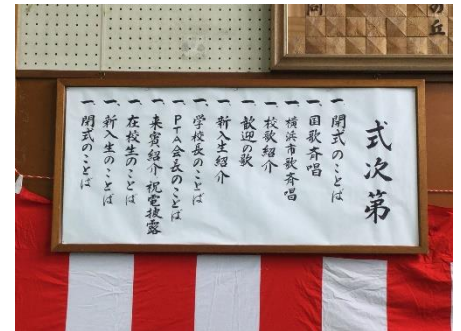 式次第
一 開式のことば
一 国歌斉唱
一 横浜市歌斉唱
一 校歌紹介
一 歓迎の歌
一 新入生紹介
一 学校長のことば
一 PTA会長のことば
一 来賓紹介 祝電披露
一 在校生のことば
一 新入生のことば
一 閉式のことば
の丘